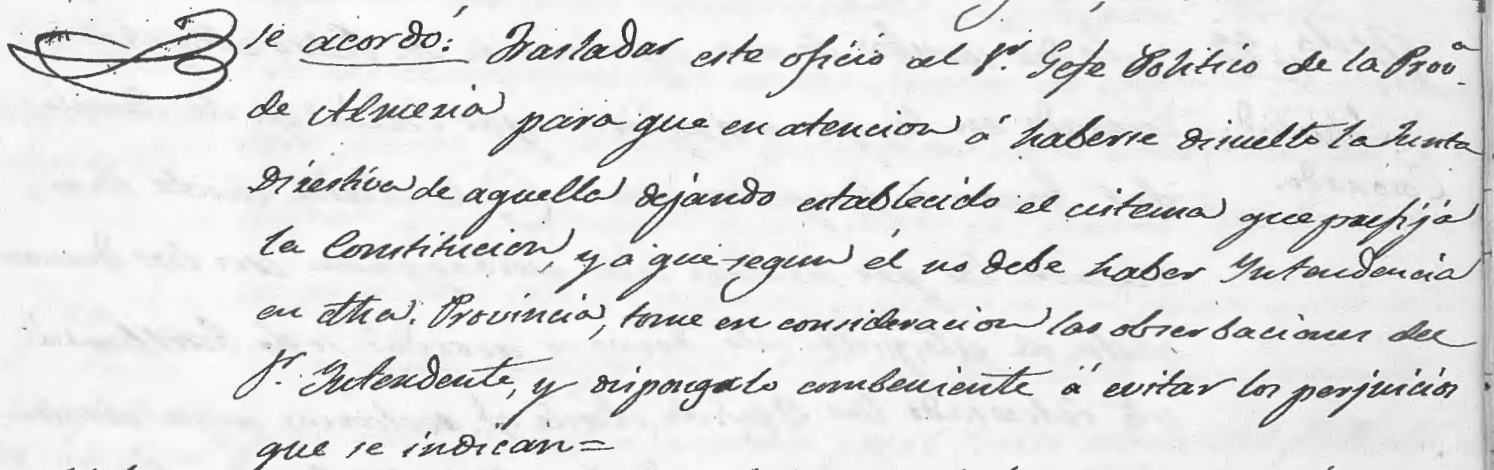 se acordó: Trasladar este oficio al Sr. Gefe Politico de la Prov.ª
de Almeria para que en atencion á haberse disuelto la Junta
Directiva de aquella dejando establecido el cistema que prefija
la Constitucion, y á que segun él no debe haber Yntendencia
en dha. Provincia, tome en consideracion las obserbaciones del
Sr. Yntendente, y disponga lo combeniente á evitar los perjuicios
que se indican=